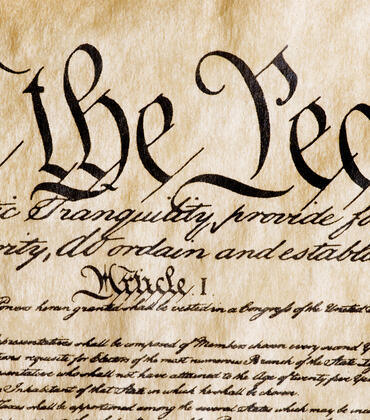 the Peo
ic Tranquility, provide fo
rity, do ordain and establi
Article. I.
Powers herein granted shall be vested in a Congress of the United S
presentatives shall be composed of Members chosen every second Y
ions requisite for Electors of the most numerous Branch of the State L
sentative who shall not have attained to the Age of twenty five Year
Inhabitant of that State in which he shall be chosen.
Taxes shall be apportioned among the several States which may be inc